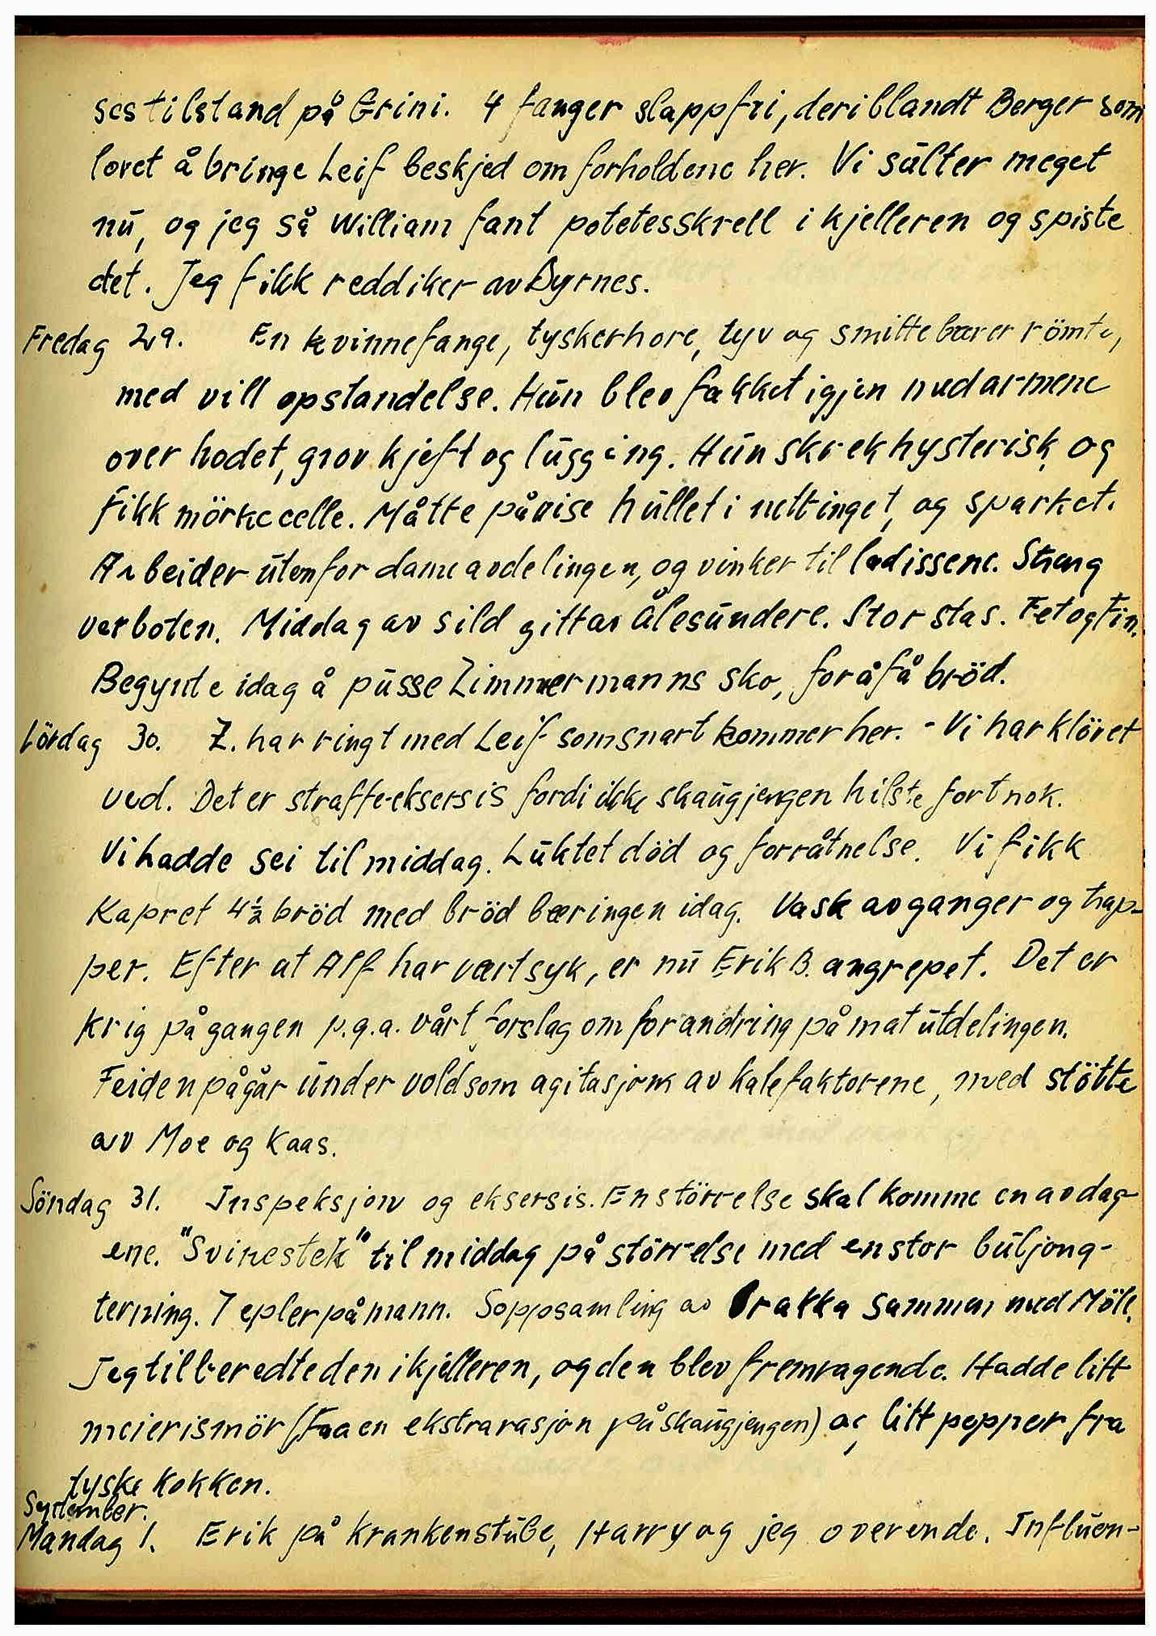 sestilstand på Grini. 4 fanger slapp fri, deriblandt Berger som
lovet å bringe Leif beskjed om forholdene her. Vi sulter meget
nu, og jeg så William fant potetesskrell i kjelleren og spiste
det. Jeg fikk reddiker av Dyrnes.
Fredag 29. En kvinnefange, tyskerhore, tyv og smittebærer römte,
med vill opstandelse. Hun blev fakket igjen med armene
over hodet, grov kjeft og lugging. Hun skrek hysterisk og
fikk mörkecelle. Måtte påvise hullet i nettinget, og sparket.
Arbeider utenfor dameavdelingen, og vinker til ladissene. Streng
verboten. Middag av sild gitt av Ålesundere. Stor stas. Fet og fin.
Begynte idag å pusse Zimmermanns sko, for å få bröd.
Lördag 30. Z. har ringt med Leif som snart kommer her. - Vi har klövet
ved. Det er straffe-eksersis fordi ikke skaugjengen hilste fort nok.
Vi hadde sei til middag. Luktet död og forråtnelse. Vi fikk
kapret 4½ bröd med brödbæringen idag. Vask av ganger og trap-
per. Efter at Alf har vært syk, er nu Erik B. angrepet. Det er
krig på gangen p.g.a. vårt forslag om forandring på matutdelingen.
Feiden pågår under voldsom agitasjon av kalefaktorene, med stötte
av Moe og Kaas.
Söndag 31. Inspeksjon og eksersis. En störrelse skal komme en av dag-
ene. "Svinestek" til middag på störrelse med en stor buljong-
terning. 7 epler på mann. Soppsamling av Brakka sammen med Möll.
Jeg tilberedte den i kjelleren, og den blev fremragende. Hadde litt
meierismör (Faa en ekstrarasjon på skaugjengen) og litt pepper fra
tyske kokken.
September.
Mandag 1. Erik på Krankenstube, Harry og jeg overende. Influen-